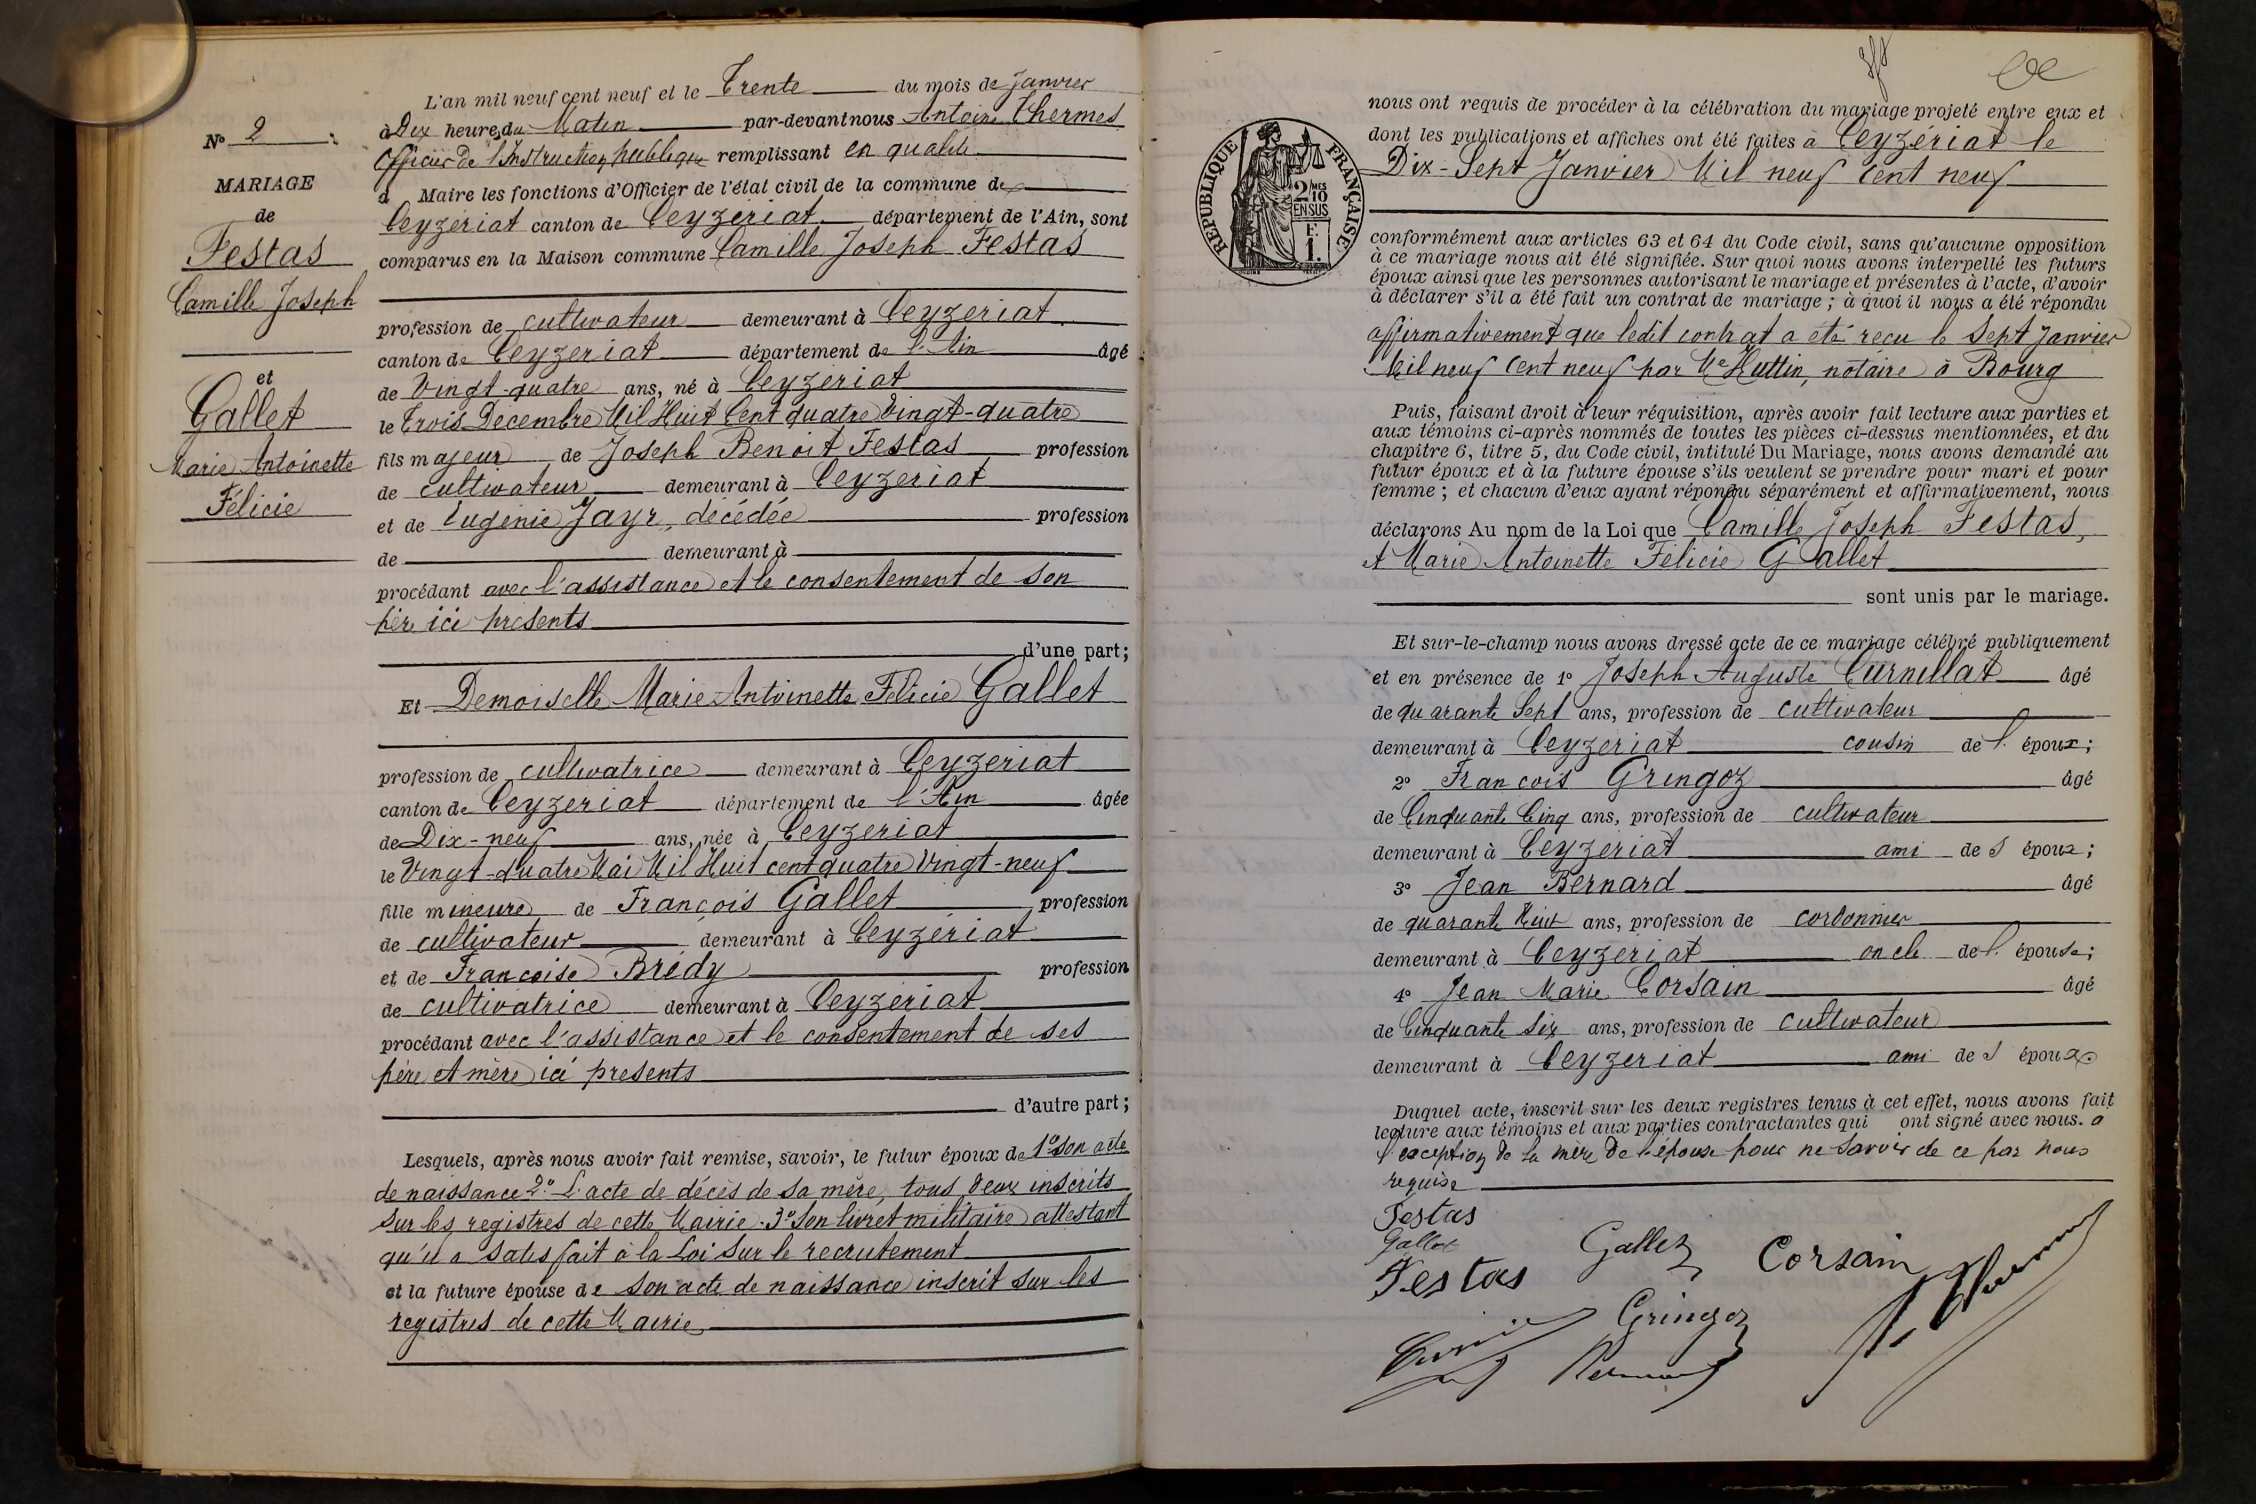 N° 2 :
MARIAGE
de
Festas
Camille Joseph
et
Gallet
Marie Antoinette
Félicie
L'an mil neuf cent neuf et le Trente du mois de Janvier
à Dix heures du Matin par-devant nous Antoine Thermes
Officier de l'Instruction publique remplissant en qualité
d Maire les fonctions d'Officier de l'état civil de la commune de
Ceyzériat canton de Ceyzériat département de l'Ain, sont
comparus en la Maison commune Camille Joseph Festas
profession de cultivateur demeurant à Ceyzériat
canton de Ceyzeriat département de l'Ain âgé
de Vingt-quatre ans, né à Ceyzériat
le Trois Decembre Mil Huit Cent quatre Vingt-quatre
fils majeur de Joseph Benoit Festas profession
de cultivateur demeurant à Ceyzeriat
et de Eugénie Jayr, décédée profession
de demeurant à
procédant avec l'assistance et le consentement de son
père ici présents
d'une part ;
Et Demoiselle Marie Antoinette Félicie Gallet
profession de cultivatrice demeurant à Ceyzeriat
canton de Ceyzeriat département de l'Ain âgée
de Dix-neuf ans, née à Ceyzeriat
le Vingt-quatre Mai Mil Huit cent quatre Vingt-neuf
fille mineure de François Gallet profession
de cultivateur demeurant à Ceyzériat
et de Francoise Brédy profession
de cultivatrice demeurant à Ceyzériat
procédant avec l'assistance et le consentement de ses
père et mère ici presents
d'autre part ;
Lesquels, après nous avoir fait remise, savoir, le futur époux de 1° son acte
de naissance 2° L'acte de décès de sa mère, tous deux inscrits
sur les registres de cette Mairie. 3° Son livret militaire attestant
qu'il a satisfait à la Loi sur le recrutement
et la future épouse de son acte de naissance inscrit sur les
registres de cette Mairie
RÉPUBLIQUE FRANÇAISE
2/10 MES
EN SUS
F.
1.
nous ont requis de procéder à la célébration du mariage projeté entre eux et
dont les publications et affiches ont été faites à Ceyzériat le
Dix-Sept Janvier Mil neuf cent neuf
conformément aux articles 63 et 64 du Code civil, sans qu'aucune opposition
à ce mariage nous ait été signifiée. Sur quoi nous avons interpellé les futurs
époux ainsi que les personnes autorisant le mariage et présentes à l'acte, d'avoir
à déclarer s'il a été fait un contrat de mariage ; à quoi il nous a été répondu
affirmativement que ledit contrat a été reçu le Sept Janvier
Mil neuf Cent neuf par Me Huttin, notaire à Bourg
Puis, faisant droit à leur réquisition, après avoir fait lecture aux parties et
aux témoins ci-après nommés de toutes les pièces ci-dessus mentionnées, et du
chapitre 6, titre 5, du Code civil, intitulé Du Mariage, nous avons demandé au
futur époux et à la future épouse s'ils veulent se prendre pour mari et pour
femme ; et chacun d'eux ayant répondu séparément et affirmativement, nous
déclarons Au nom de la Loi que Camille Joseph Festas,
et Marie Antoinette Félicie Gallet
sont unis par le mariage.
Et sur-le-champ nous avons dressé acte de ce mariage célébré publiquement
et en présence de 1° Joseph Auguste Curnillat âgé
de quarante Sept ans, profession de cultivateur
demeurant à Ceyzeriat cousin de l'époux ;
2° Francois Gringoz âgé
de Cinquante Cinq ans, profession de cultivateur
demeurant à Ceyzeriat ami de s époux ;
3° Jean Bernard âgé
de quarante Huit ans, profession de cordonnier
demeurant à Ceyzeriat oncle de l'épouse ;
4° Jean Marie Corsain âgé
de Cinquante Six ans, profession de cultivateur
demeurant à Ceyzeriat ami de s époux.
Duquel acte, inscrit sur les deux registres tenus à cet effet, nous avons fait
lecture aux témoins et aux parties contractantes qui ont signé avec nous. a
l'exception de la mère de l'épouse pour ne savoir de ce par nous
requise
Festas
Gallet
Gallet
Corsain
Festas
Gringoz